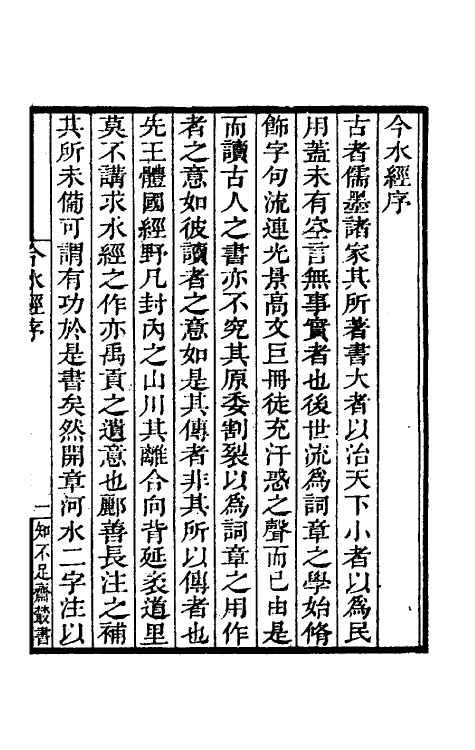 今水經序
古者儒墨諸家其所著書大者以治天下小者以爲民
用蓋未有空言無事實者也後世流爲詞章之學始脩
飾字句流連光景高文巨冊徒充汗惑之聲而已由是
而讀古人之書亦不究其原委割裂以爲詞章之用作
者之意如彼讀者之意如是其傳者非其所以傳者也
先王體國經野凡封內之山川其離合向背延袤道里
莫不講求水經之作亦禹貢之遺意也酈善長注之補
其所未備可謂有功於是書矣然開章河水二字注以
今水經序
一
知不足齋叢書